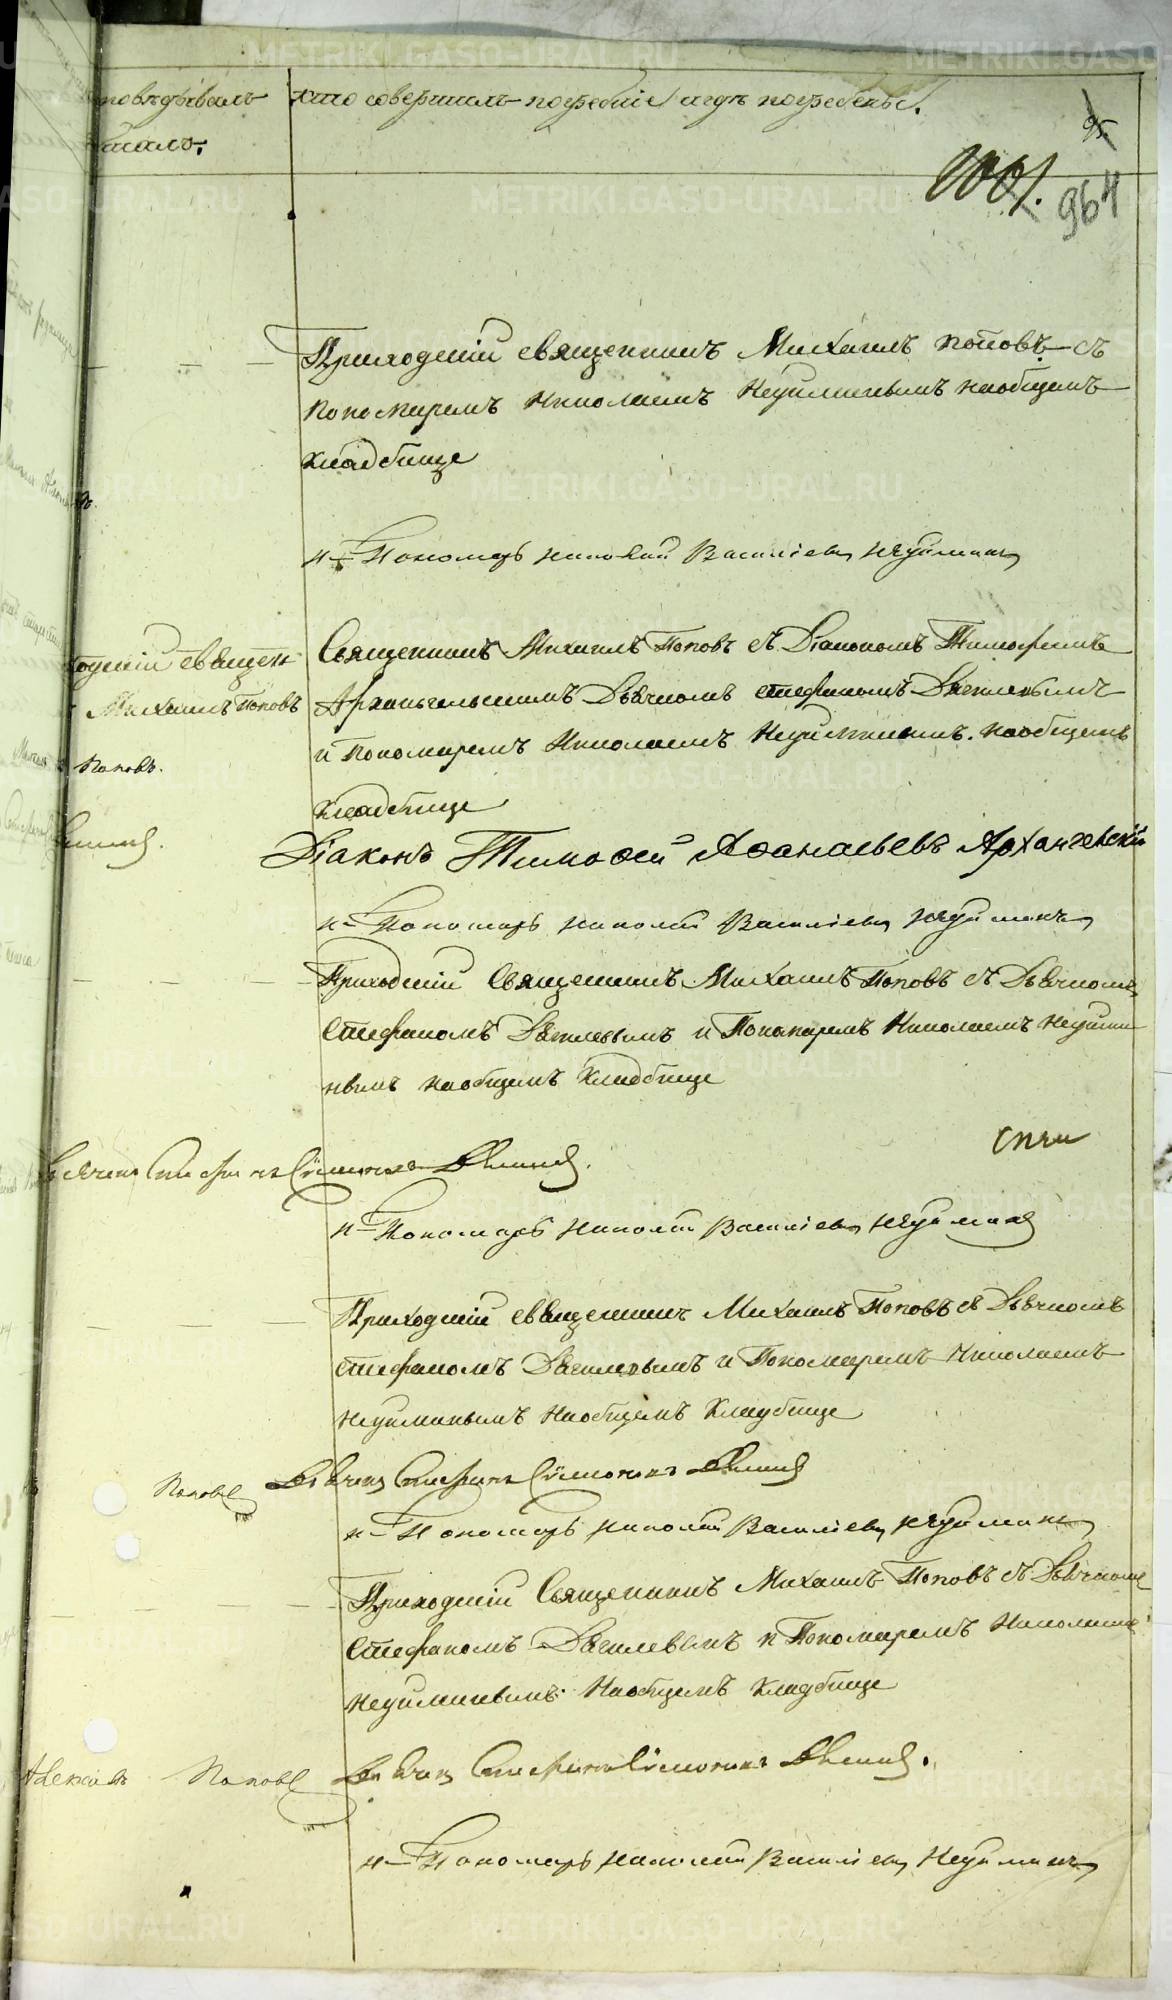 METRIKI.GASO-URAL.RU
повѣдывалъ
кто совершилъ погребенiе и гдѣ погребены.
95
1001.
964
Приходскiй священникъ Михаилъ Поповъ съ
Пономаремъ Николаемъ Неуйминымъ на общемъ
кладбище
Пономарь Николай Васильевъ Неуйминъ
одскiй священ
Михаилъ Поповъ
Поповъ.
Священникъ Михаилъ Поповъ съ Дiакономъ Тимофеемъ
Архангельскимъ Дьячкомъ Стефаномъ Дягилевымъ
и Пономаремъ Николаемъ Неуйминымъ. на общемъ
кладбище
Дiаконъ Тимофей Афанасьевъ Архангельскiй
Пономарь Николай Васильевъ Неуйминъ
Приходскiй Священникъ Михаилъ Поповъ съ Дьячкомъ
Стефаномъ Дягилевымъ и Пономаремъ Николаемъ Неуйми
нымъ на общемъ кладбище
Дьячекъ Стефанъ
Пономарь Николай Васильевъ Неуйминъ
Приходскiй священникъ Михаилъ Поповъ съ Дьячкомъ
Стефаномъ Дягилевымъ и Пономаремъ Николаемъ
Неуйминымъ на общемъ кладбище
Поповъ
Дьячекъ Стефанъ
Пономарь Николай Васильевъ Неуйминъ
Приходскiй Священникъ Михаилъ Поповъ съ Дьячкомъ
Стефаномъ Дягилевымъ и Пономаремъ Николаемъ
Неуйминымъ на общемъ кладбище
Поповъ
Дьячекъ Стефанъ
Пономарь Николай Васильевъ Неуйминъ